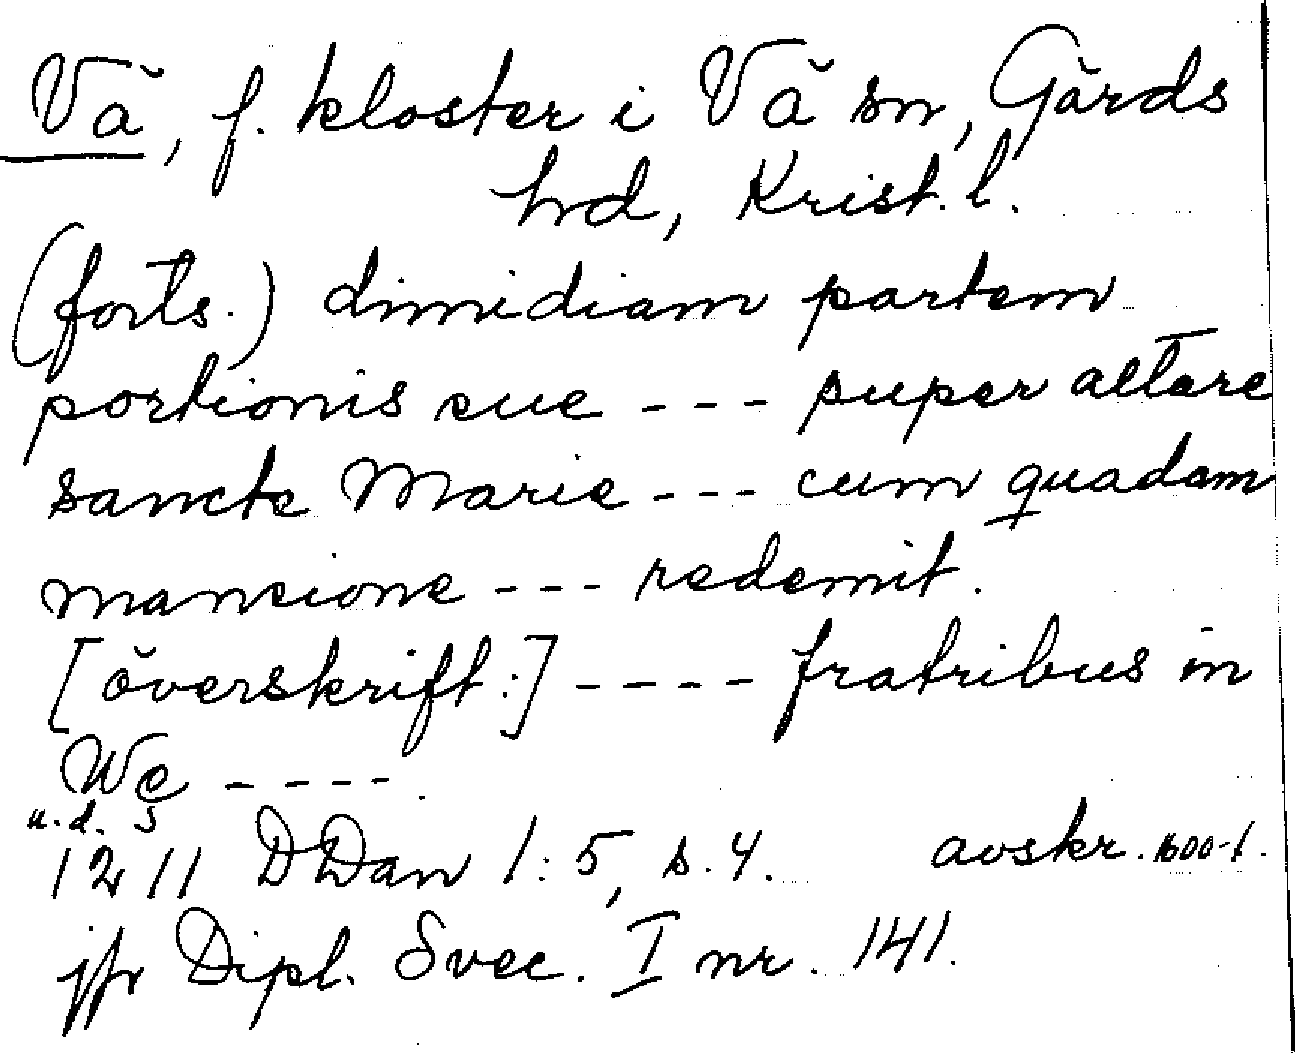 Vä, f. kloster i Vä sn, Gärds
hd, Krist. l.
(forts.) dimidiam partem
portionis sue --- super altare
sancte Marie --- cum quadam
mansione --- redemit.
[överskrift:] ---- fratribus in
We ----.
u.d. 5
1211 DDan 1:5, s. 4. avskr. 1600-t.
jfr Dipl. Svec. I nr. 141.